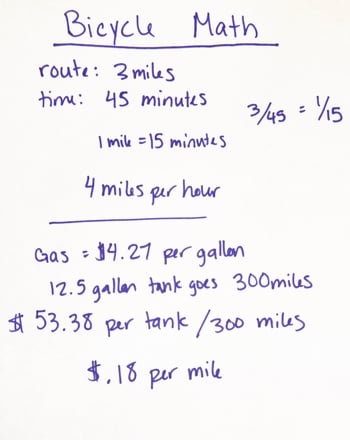 Bicycle Math
route: 3 miles
time: 45 minutes
3/45 = 1/15
1 mile = 15 minutes
4 miles per hour
Gas = $4.27 per gallon
12.5 gallon tank goes 300 miles
$ 53.38 per tank / 300 miles
$.18 per mile